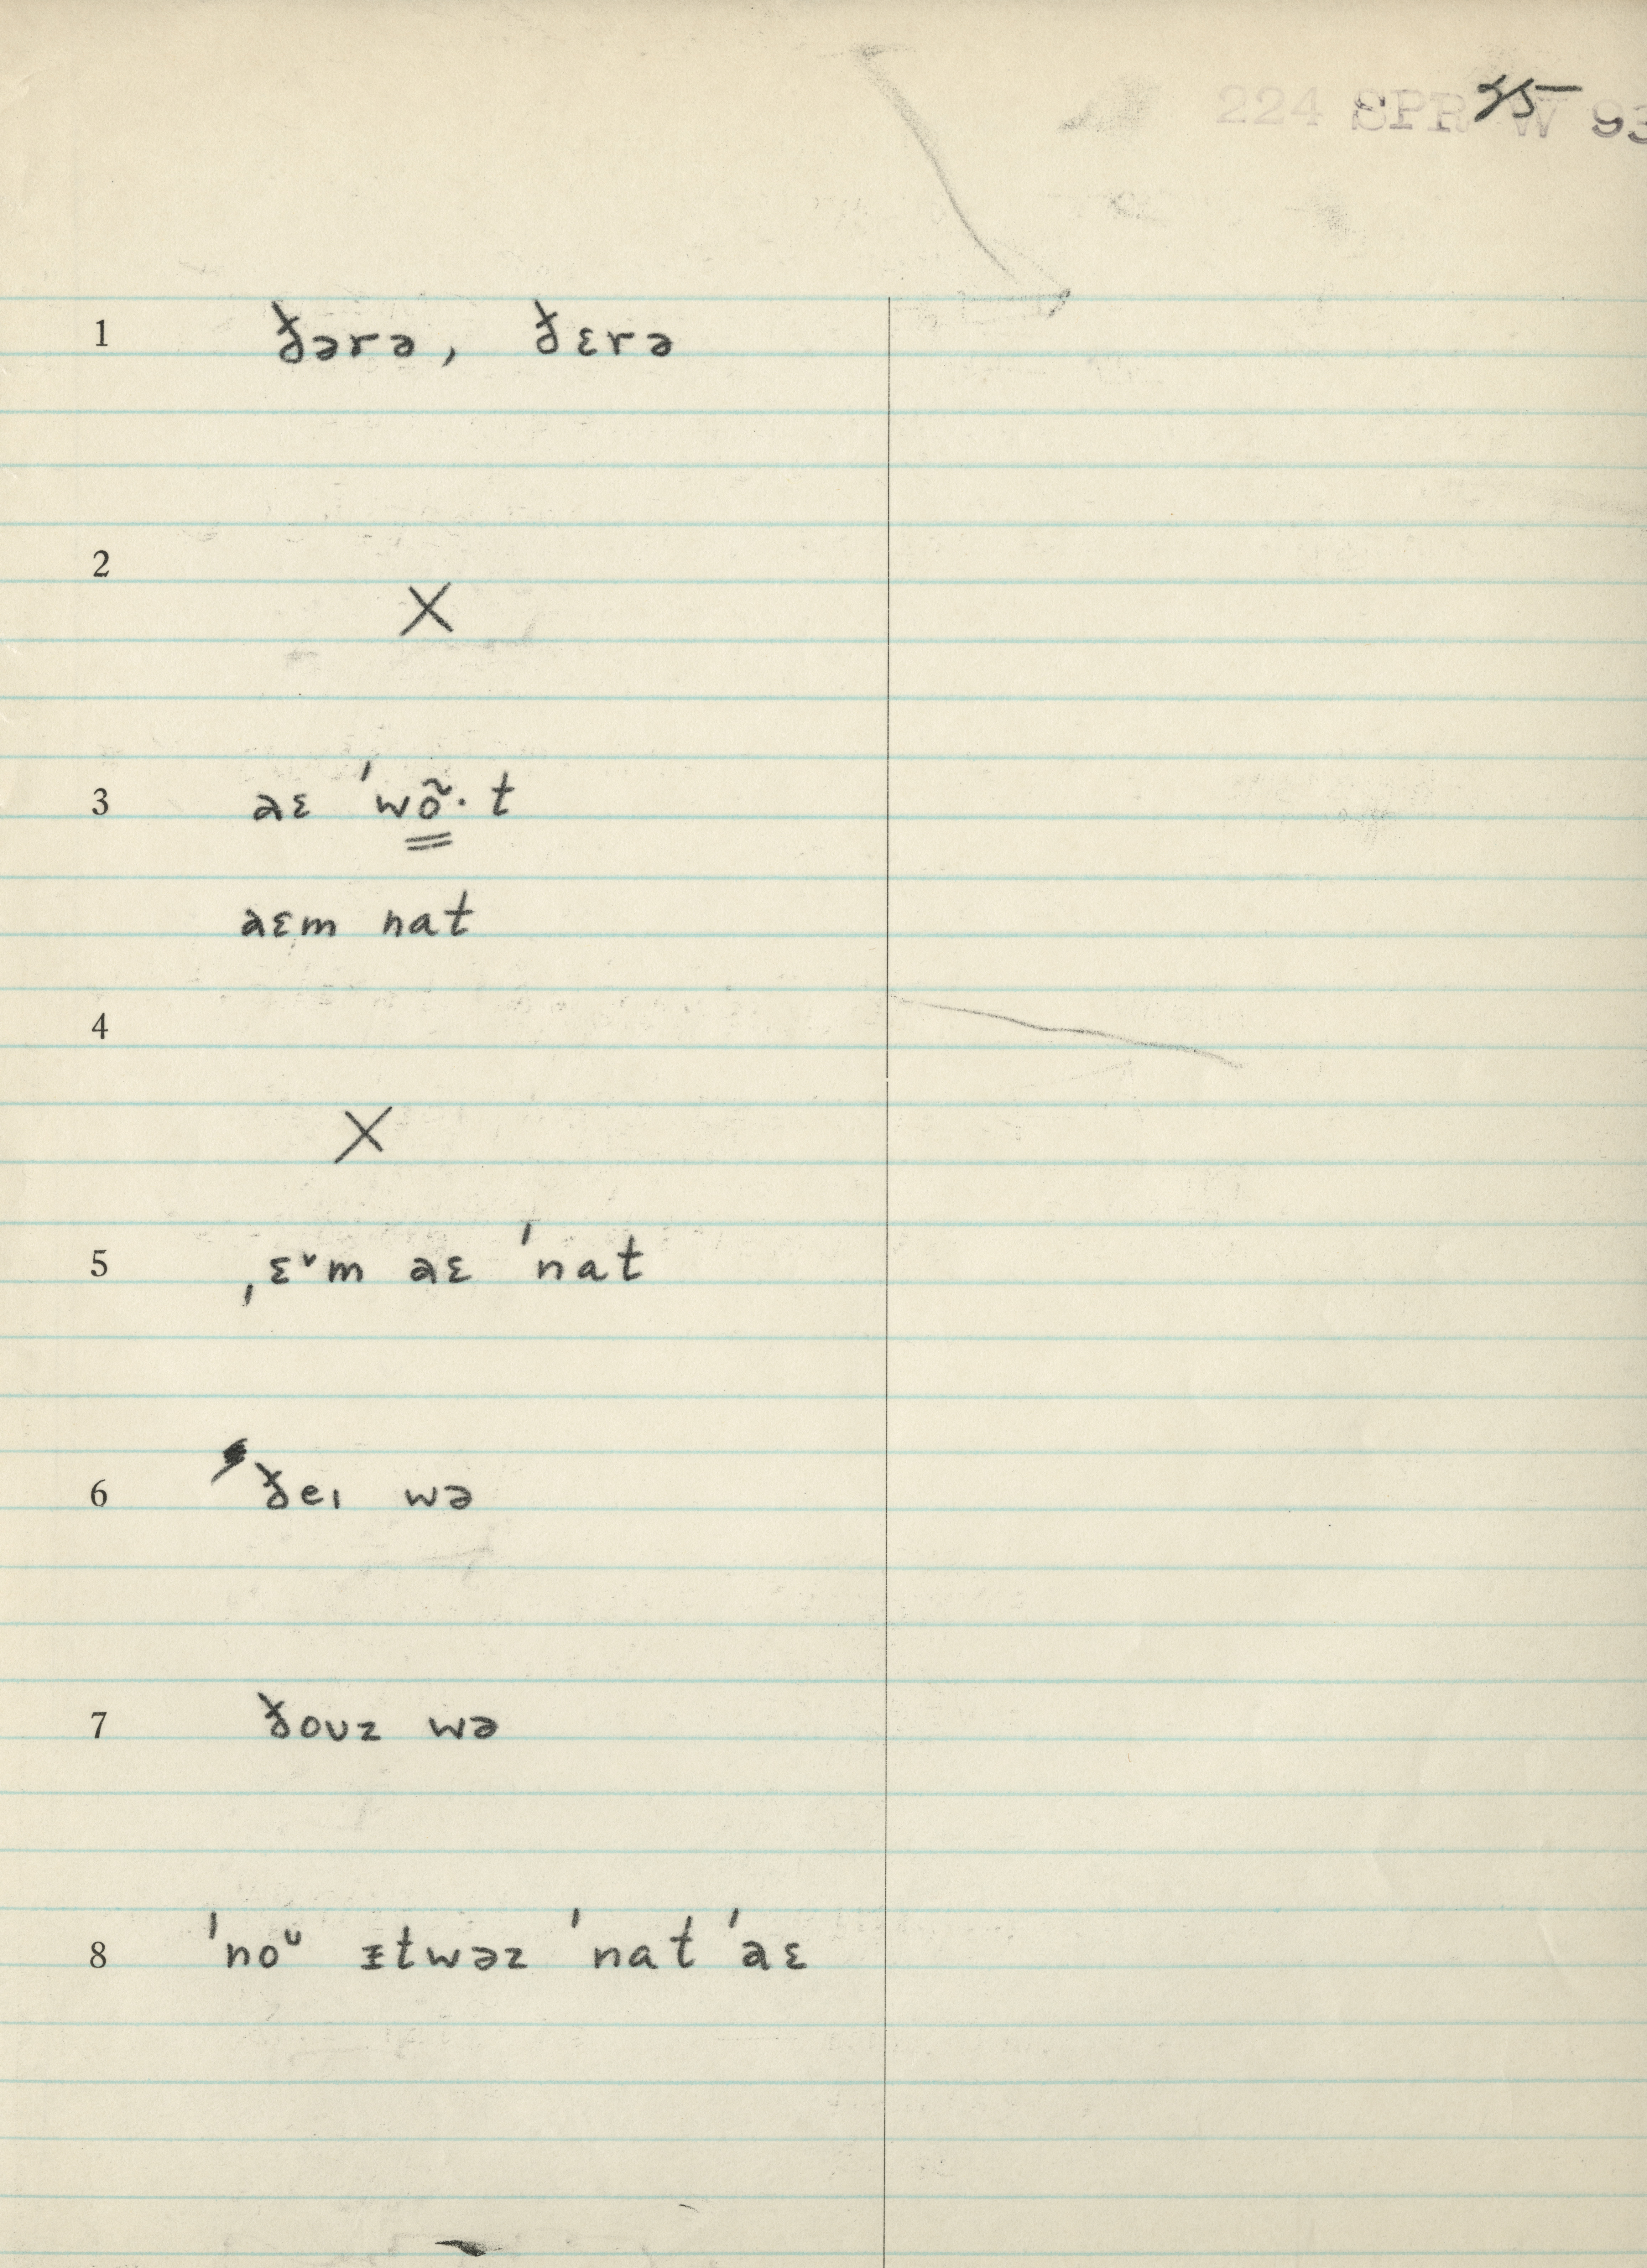 224 SPR W 93
1 ðərə, ðɛrə
2
X
3 aɛ ˈwõ·t
aɛm nat
4
X
5 ˌɛᵛm aɛ ˈnat
6 ðeɪ wə
7 ðoʊz wə
8 ˈnoᶷ ɪtwəz ˈnat ˈaɛ